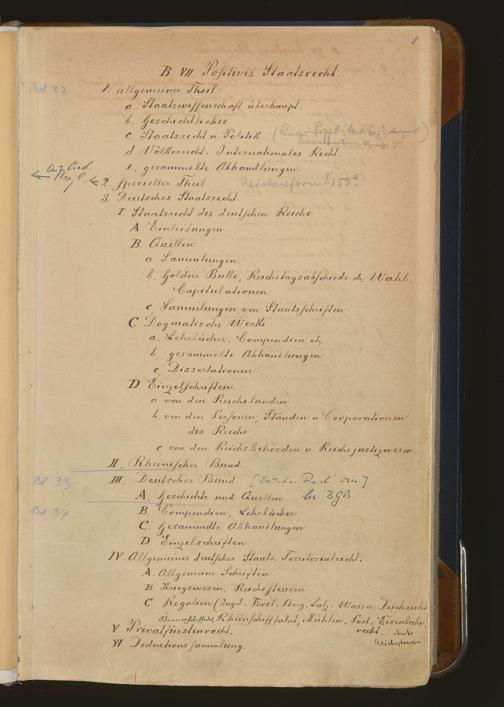 1
B VII. Positives Staatsrecht.
Bd 32
1. allgemeiner Theil
a. Staatswissenschaft überhaupt.
b. Geschichtliches
c. Staatsrecht u Politik
d. Völkerrecht. Internationales Recht.
e. gesammelte Abhandlungen
2. Specieller Theil
3. Deutsches Staatsrecht
I Staatsrecht des deutschen Reichs
A Einleitungen
B. Quellen
a Sammlungen
b. Goldne Bulle, Reichstagsabschiede etc, Wahl-
Capitulationen
c, Sammlungen von Staatsschriften
C Dogmatische Werke
a. Lehrbücher, Compendien etc,
b, gesammelte Abhandlungen
c, Dissertationen
D Einzelschriften
a von den Reichslanden
b. von den Personen, Ständen u Corporationen
des Reichs
c von den Reichsbehörden u Reichsjustizwesen
II. Rheinischer Bund.
Bd 33
III. Deutscher Bund
A Geschichte und Quellen
Bd 34
B Compendien, Lehrbücher
C. Gesammelte Abhandlungen
D Einzelschriften
IV Allgemeines deutsches Staats-Territorialrecht.
A. Allgemeine Schriften
B Kriegswesen, Reichssteuern
C Regalien (Jagd- Forst- Berg- Salz- Wasser- Deichrecht
Binnenschiffahrt, Rheinschiffahrt, Mühlen- Post- Eisenbahn-
recht.
V Privatfürstenrecht.
VI Deductionssammlung.